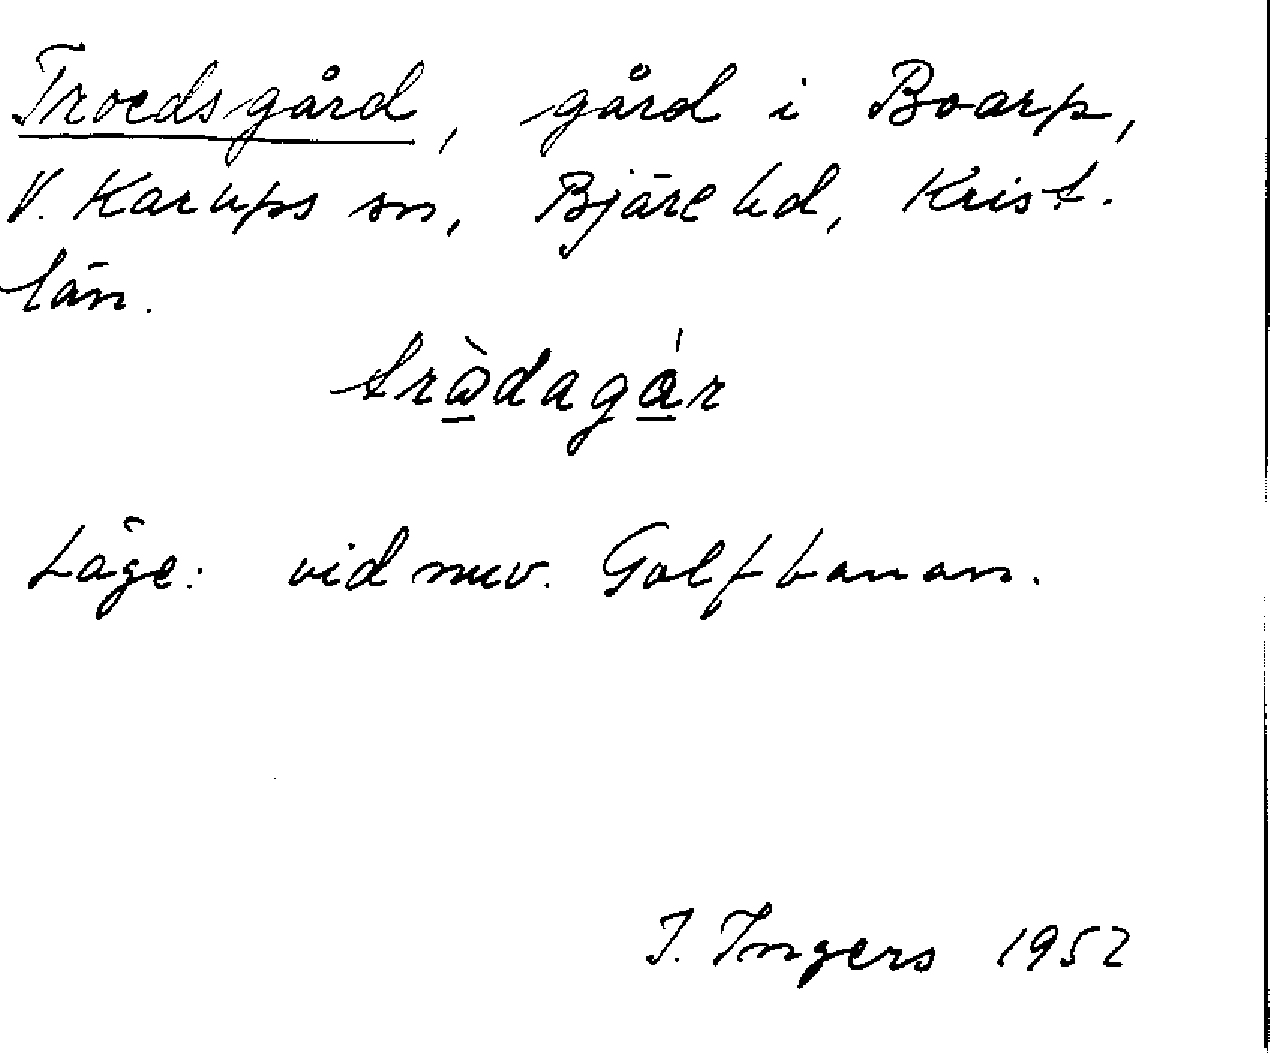 Troedsgård, gård i Boarp,
V. Karups sn, Bjäre hd, Krist.
län.
trò̲dagá̲r
Läge: vid nuv. Golfbanan.
I. Ingers 1952